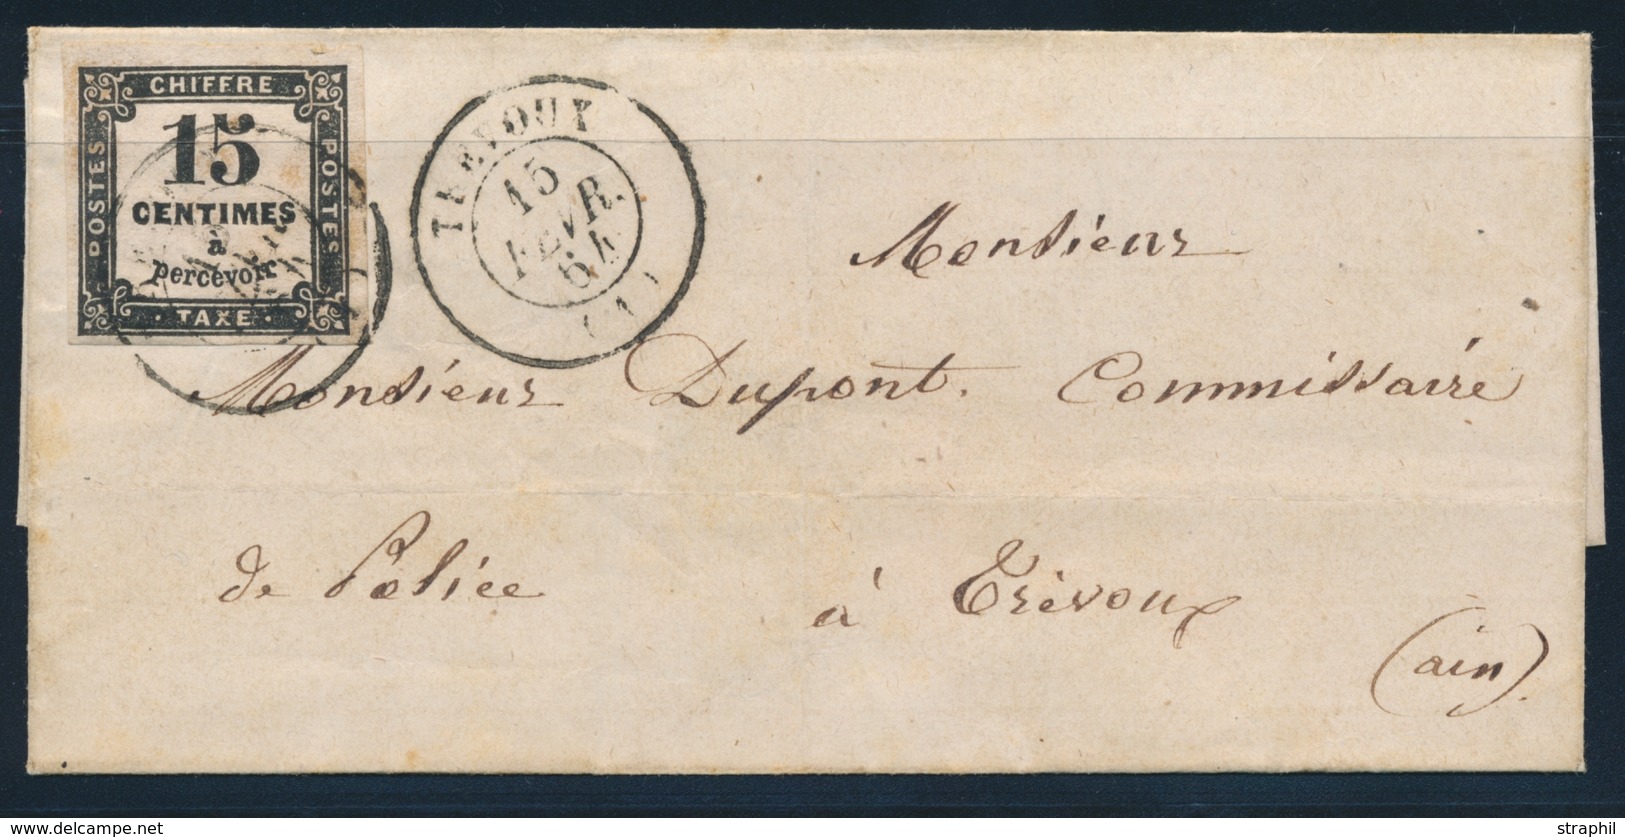 CHIFFRE
POSTES
15
CENTIMES
à
percevoir
POSTES
TAXE
TREVOUX
15
FEVR.
64
(1)
Monsieur
Monsieur Dupont. Commissaire
de Police à Trévoux
(ain)
delcampe.net
straphil